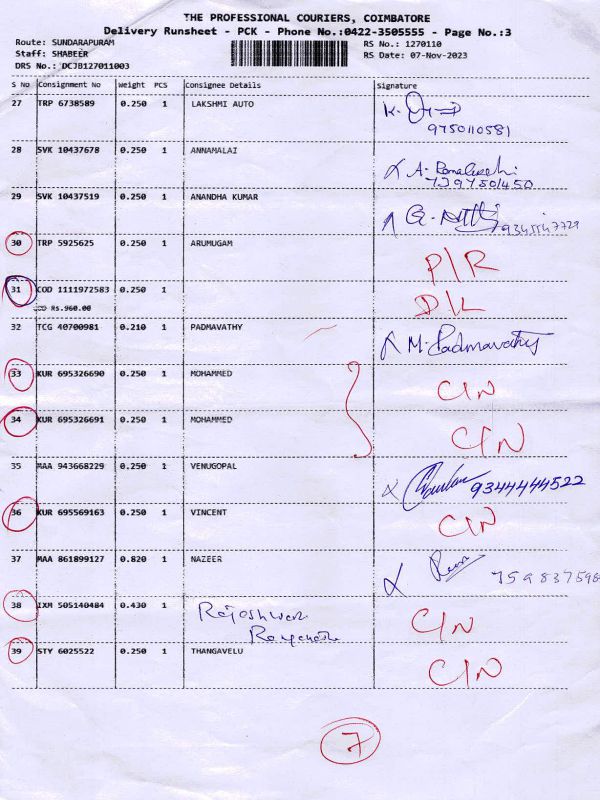 THE PROFESSIONAL COURIERS, COIMBATORE
Delivery Runsheet - PCK - Phone No.:0422-3505555 - Page No.:3
Route: SUNDARAPURAM RS No.: 1270110
Staff: SHABEER RS Date: 07-Nov-2023
DRS No.: DCJB127011003
S No Consignment No Weight PCS Consignee Details Signature
27 TRP 6738589 0.250 1 LAKSHMI AUTO
9750110581
28 SVK 10437678 0.250 1 ANNAMALAI
29 SVK 10437519 0.250 1 ANANDHA KUMAR
30 TRP 5925625 0.250 1 ARUMUGAM P/R
31 COD 1111972583 0.250 1 D/L
COD Rs.960.00
32 TCG 40700981 0.210 1 PADMAVATHY M. Padmavathy
33 KUR 695326690 0.250 1 MOHAMMED C/N
34 KUR 695326691 0.250 1 MOHAMMED C/N
35 MAA 943668229 0.250 1 VENUGOPAL 9344444522
36 KUR 695569163 0.250 1 VINCENT C/N
37 MAA 861899127 0.820 1 NAZEER 759837598
38 IXM 505140484 0.430 1 C/N
39 STY 6025522 0.250 1 THANGAVELU C/N
7